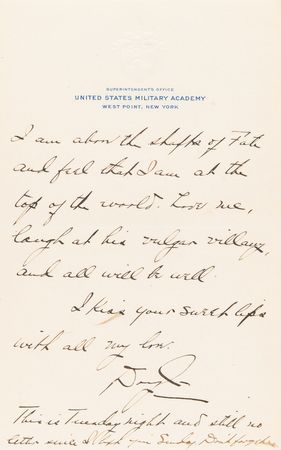 SUPERINTENDENT'S OFFICE
UNITED STATES MILITARY ACADEMY
WEST POINT, NEW YORK
I am above the shafts of Fate
and feel that I am at the
top of the world. Love me,
laugh at his vulgar villany,
and all will be well.
I kiss your sweet lips
with all my love.
Doug
This is Tuesday night and still no
letter since I left you Sunday. Don't forget me